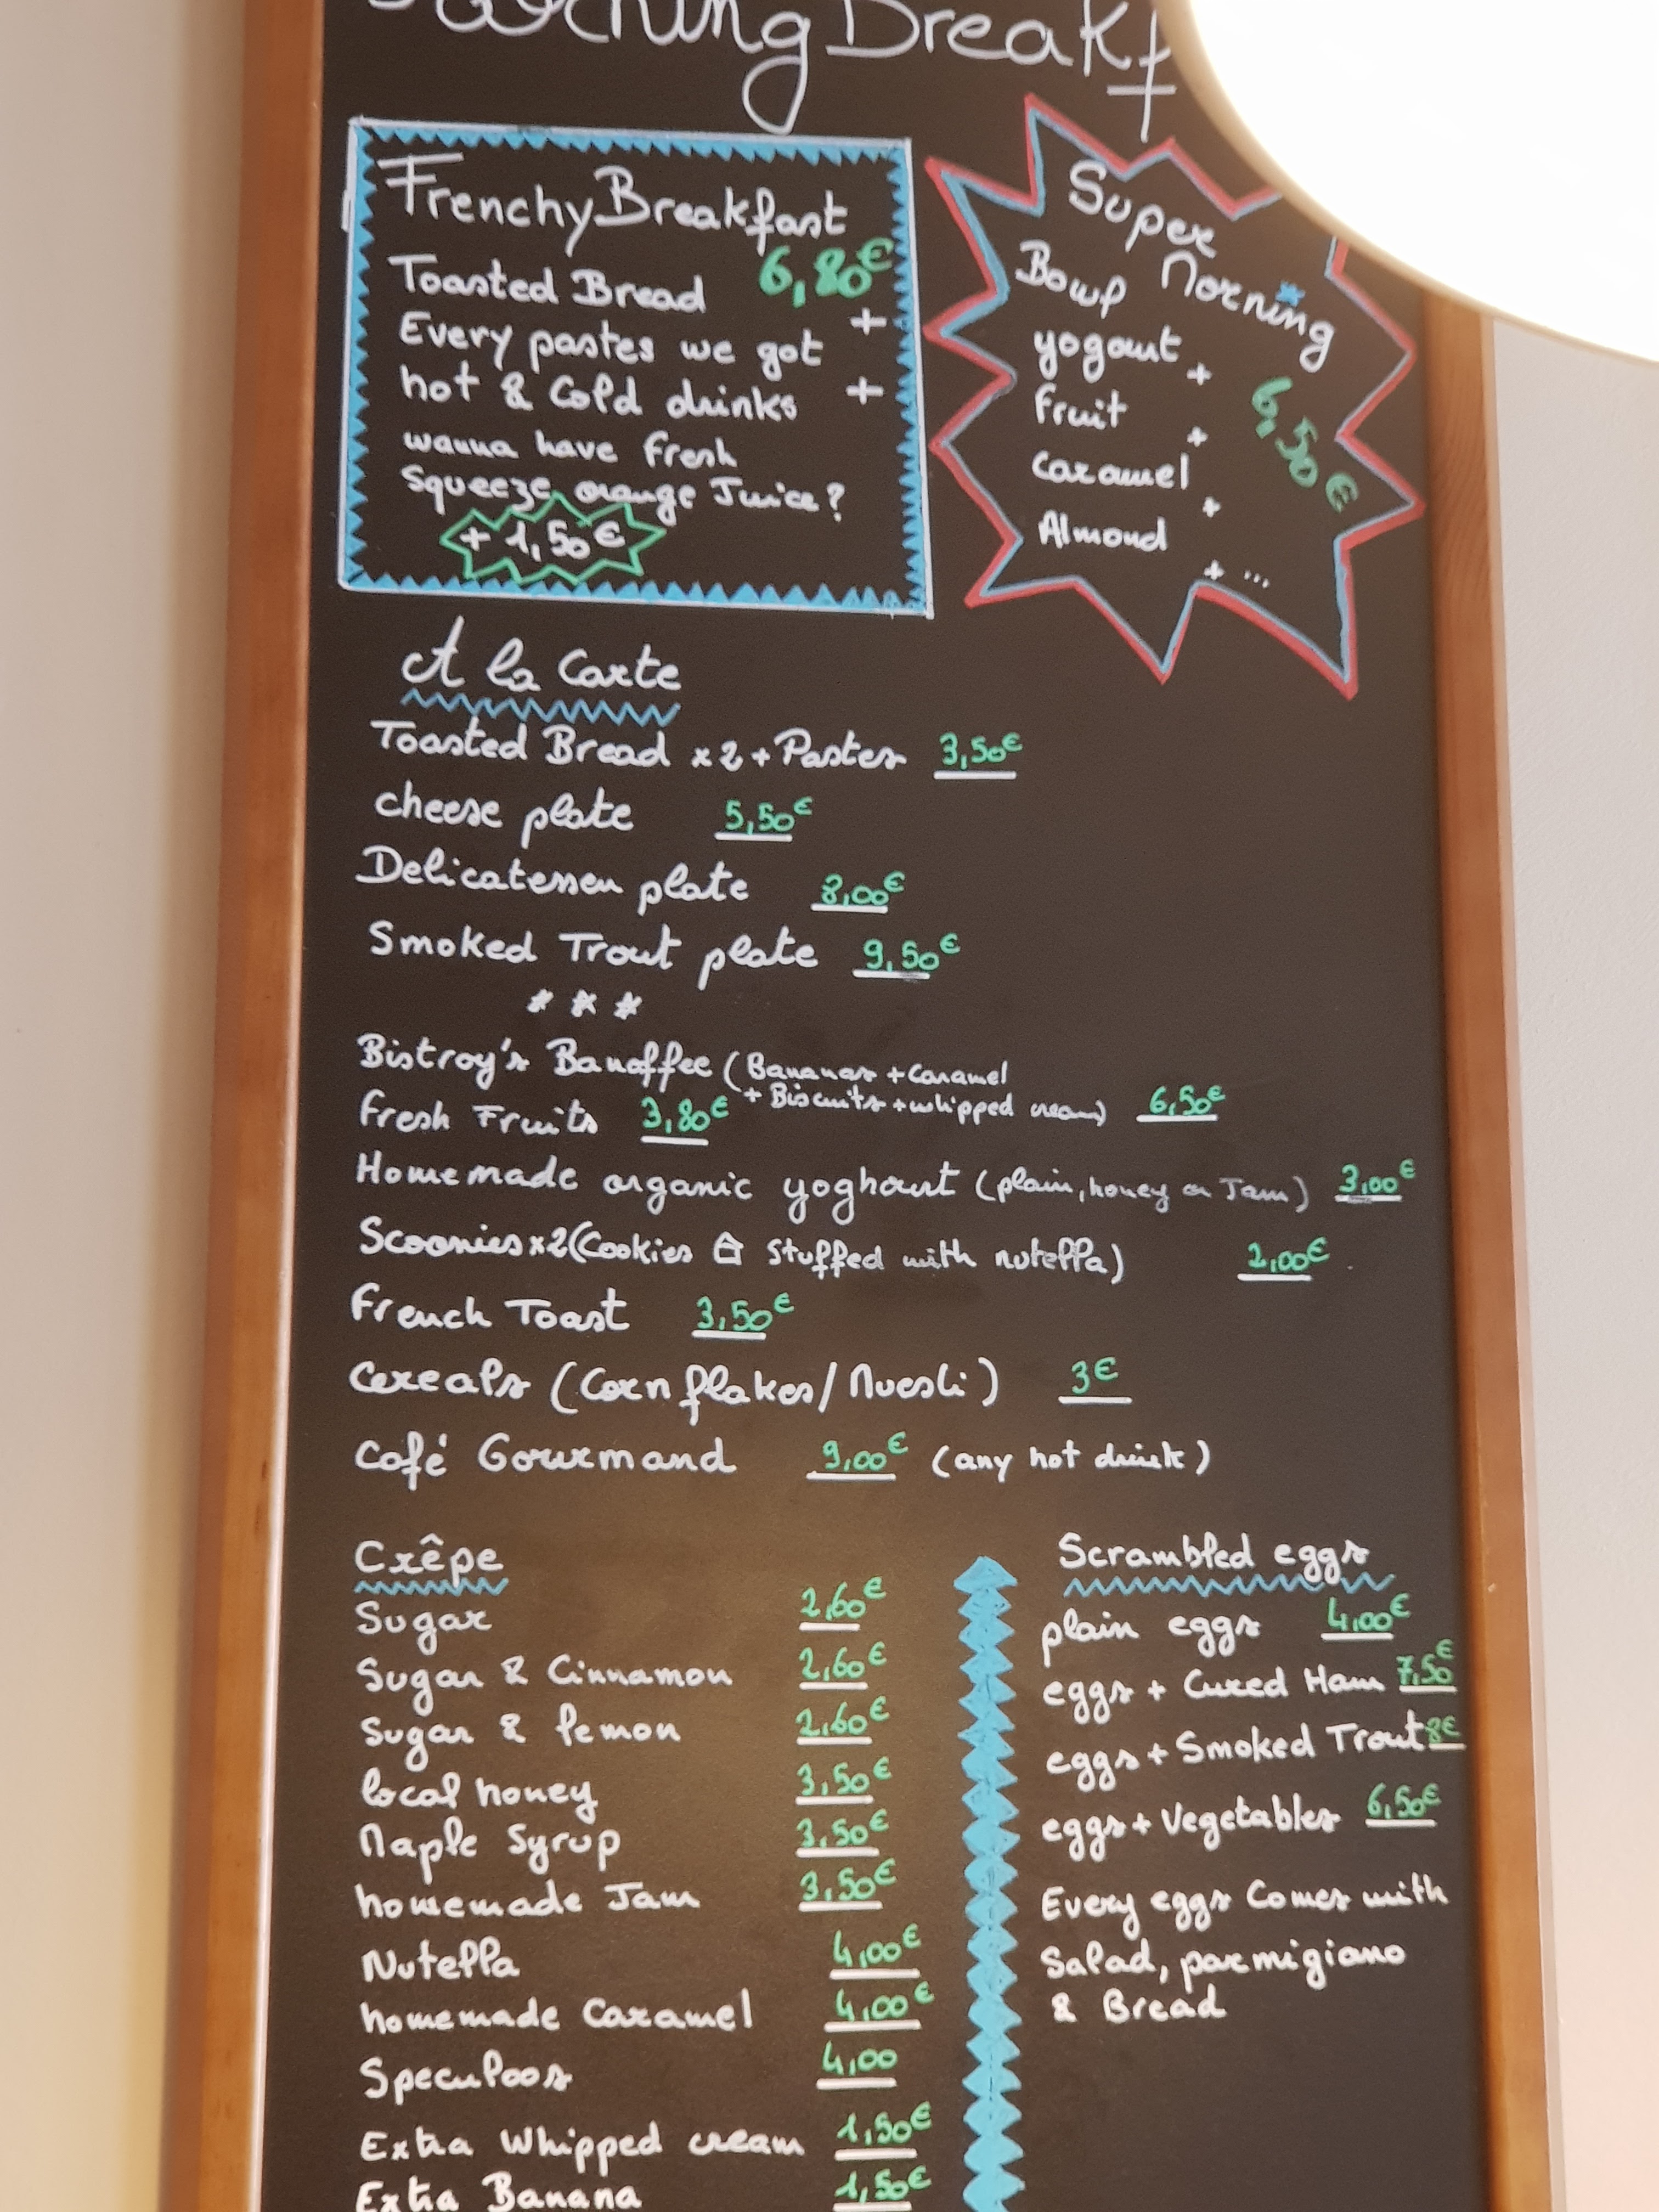 Frenchy Breakfast
6,80€
Toasted Bread +
Every pastes we got +
hot & Cold drinks
wanna have fresh
Squeeze orange Juice?
+ 1,50€
Super
Morning
Bowl
yogourt +
fruit +
6,50€
Caramel +
Almond + ...
A la Carte
Toasted Bread x2 + Pastes 3,50€
cheese plate 5,50€
Delicatessen plate 8,00€
Smoked Trout plate 9,50€
* * *
Bistroy's Banoffee (Bananas + Caramel
+ Biscuits + whipped cream) 6,50€
fresh Fruits 3,80€
Homemade organic yoghourt (plain, honey or Jam) 3,00€
Scoonies x2 (Cookies stuffed with nutella) 2,00€
French Toast 3,50€
Cereals (Corn flakes/Muesli) 3€
Café Gourmand 9,00€ (any hot drink)
Crêpe
Sugar 2,60€
Sugar & Cinnamon 2,60€
Sugar & lemon 2,60€
local honey 3,50€
Maple Syrup 3,50€
homemade Jam 3,50€
Nutella 4,00€
homemade Caramel 4,00€
Speculoos 4,00
Extra Whipped cream 1,50€
Extra Banana 1,50€
Scrambled eggs
plain eggs 4,00€
eggs + Cured Ham 7,50€
eggs + Smoked Trout 8€
eggs + Vegetables 6,50€
Every eggs Comes with
Salad, parmigiano
& Bread